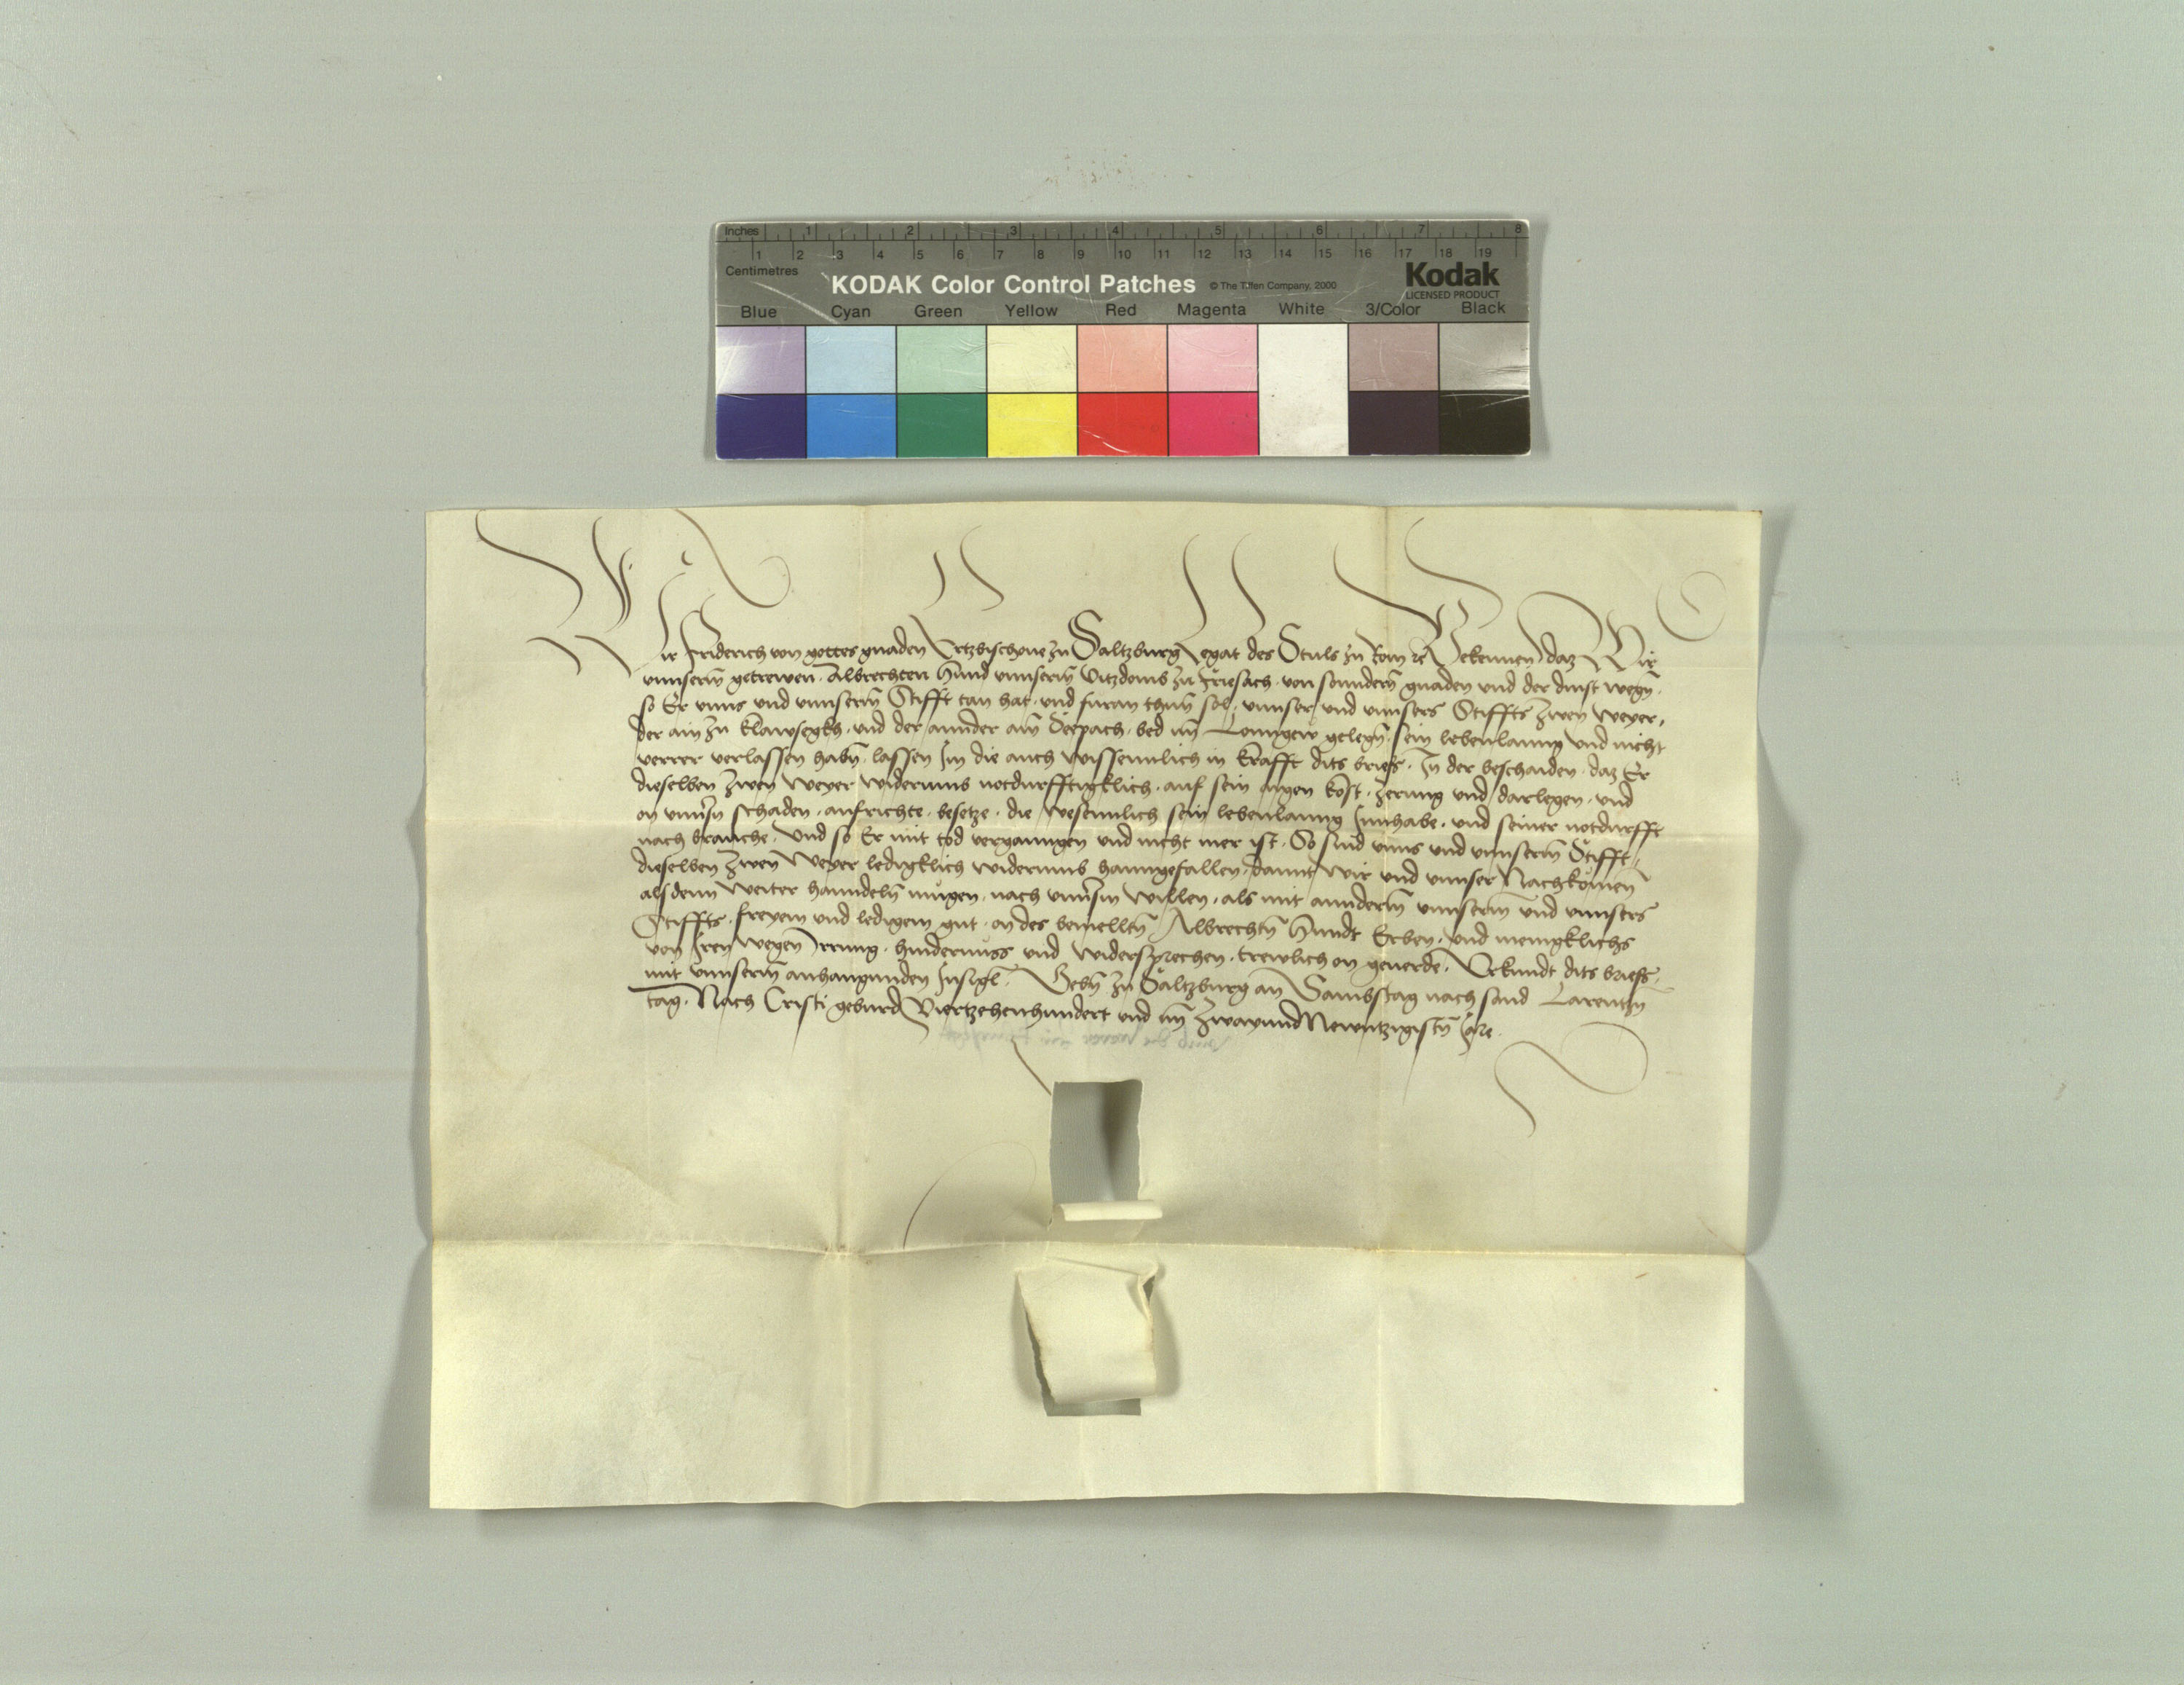 Inches 1 2 3 4 5 6 7 8
1 2 3 4 5 6 7 8 9 10 11 12 13 14 15 16 17 18 19
Centimetres
KODAK Color Control Patches © The Tiffen Company, 2000 Kodak
LICENSED PRODUCT
Blue Cyan Green Yellow Red Magenta White 3/Color Black
Wir Friderich von gottes gnaden Ertzbischoue zu Saltzburg Legat des Stuls zu Rom ꝛc Bekennen daz Wir
vnnserm̄ getrewen Albrechten Hund vnnserm̄ Vitzdomb zu Friesach von sonndern̄ gnaden vnd der dinst wegn̄
so Er vnns vnd vnnserm̄ Stifft tan hat vnd furan thun̄ sol vnnser vnd vnnsers Stiffts zwen weyer
der ain zu klawsegkh vnd der annder am̄ Seepach bed im̄ Lonngew gelegn̄ sein lebenlanng vnd nicht
verrer verlassen habn̄ lassen Im die auch wissenntlich in krafft dits briefs In der beschaiden daz Er
dieselben zwen Weyer widerumb notdurfftigklich auf sein aigen kost zerung vnd darlegen vnd
on vnnsṙn schaden aufrichte besetze die wesennlich sein lebenlanng Innhabe vnd seiner notdurfft
nach brauche Vnd so Er mit tod verganngen vnd nicht mer ist So sind vnns vnd vnnserm̄ Stifft
dieselben zwen Weyer ledigklich widerumb haimgefallen damit wir vnd vnnser Nachkomen
alsdenn weiter hanndeln̄ mugen nach vnnsṙm willen als mit annderm̄ vnnserm̄ vnd vnnsers
Stiffts freyem vnd ledigem gut on des bemelltn̄ Albrechtn̄ Hundt Erben vnd menigklichs
von Iren wegen Irrung hindernuss vnd widersprechen trewlich on geuerde Vrkundt dits briefs
mit vnnserm̄ anhangunden Insigl Gebn̄ zu Saltzburg an Sambstag nach sand Larentzn̄
tag Nach Cristi geburd Viertzehenhundert vnd im̄ zwayundNewntzigistn̄ Jare